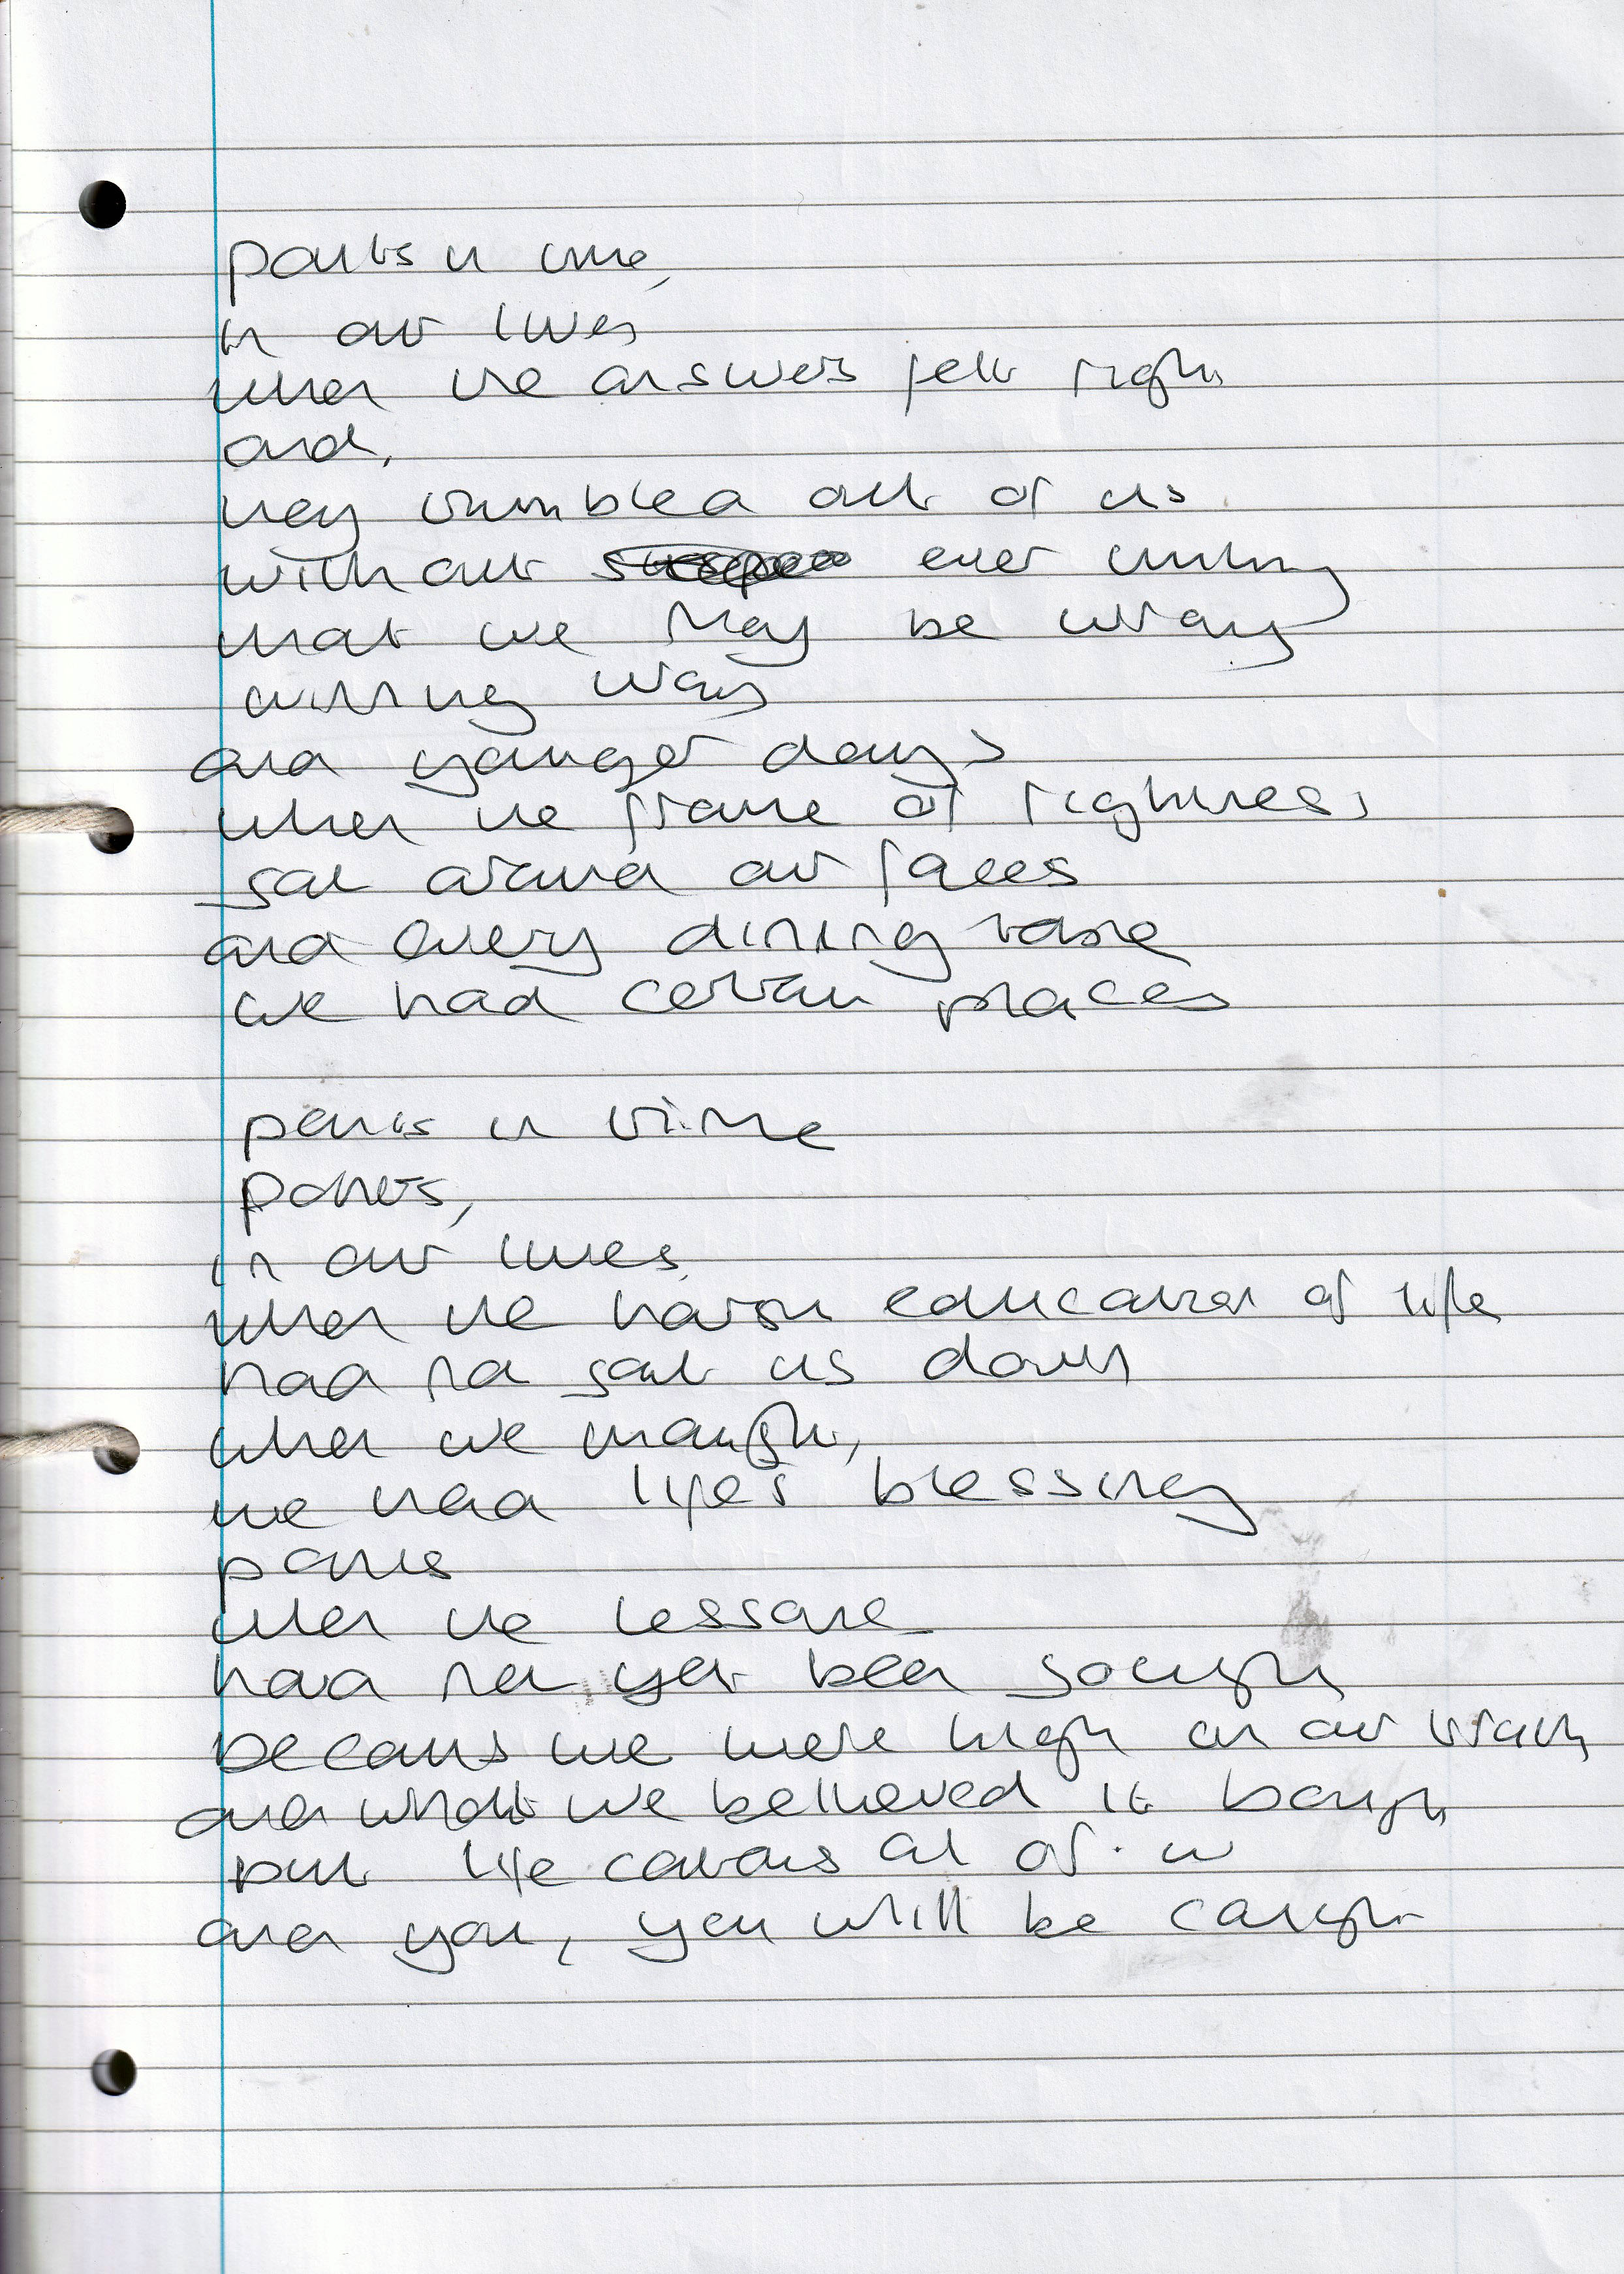 points in time,
in our lives
when the answers felt right
and,
they tumbled out of us
without ever thinking
that we may be wrong
wrong
and younger days
when the frame of rightness
sat around our faces
and every dining table
we had certain places
points in time
points,
in our lives
when the harsh education of life
had not sat us down
when we thought,
we had life's blessing
points
when the lessons
had not yet been sought
because we were high on our truth
and what we believed it bought
but life catches all of us
and you, you will be caught